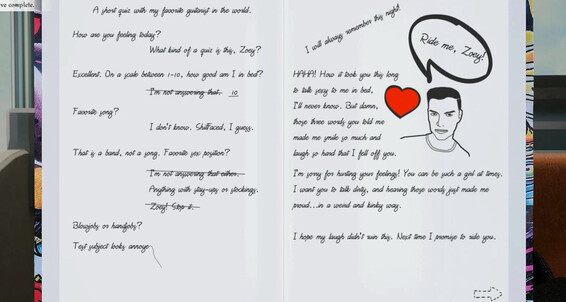 ve complete.
A short quiz with my favorite guitarist in the world.
How are you feeling today?
What kind of a quiz is this, Zoey?
Excellent. On a scale between 1-10, how good am I in bed?
I'm not answering that. 10
Favorite song?
I don't know. Shitfaced, I guess.
That is a band, not a song. Favorite sex position?
I'm not answering that either.
Anything with stay-ups or stockings.
Zoey! Stop it.
Blowjobs or handjobs?
Test subject looks annoye
I will always remember this night!
Ride me, Zoey!
HAHA!! How it took you this long
to talk sexy to me in bed,
I'll never know. But damn,
those three words you told me
made me smile so much and
laugh so hard that I fell off you.
I'm sorry for hurting your feelings! You can be such a girl at times.
I want you to talk dirty, and hearing those words just made me
proud...in a weird and kinky way.
I hope my laugh didn't ruin this. Next time I promise to ride you.